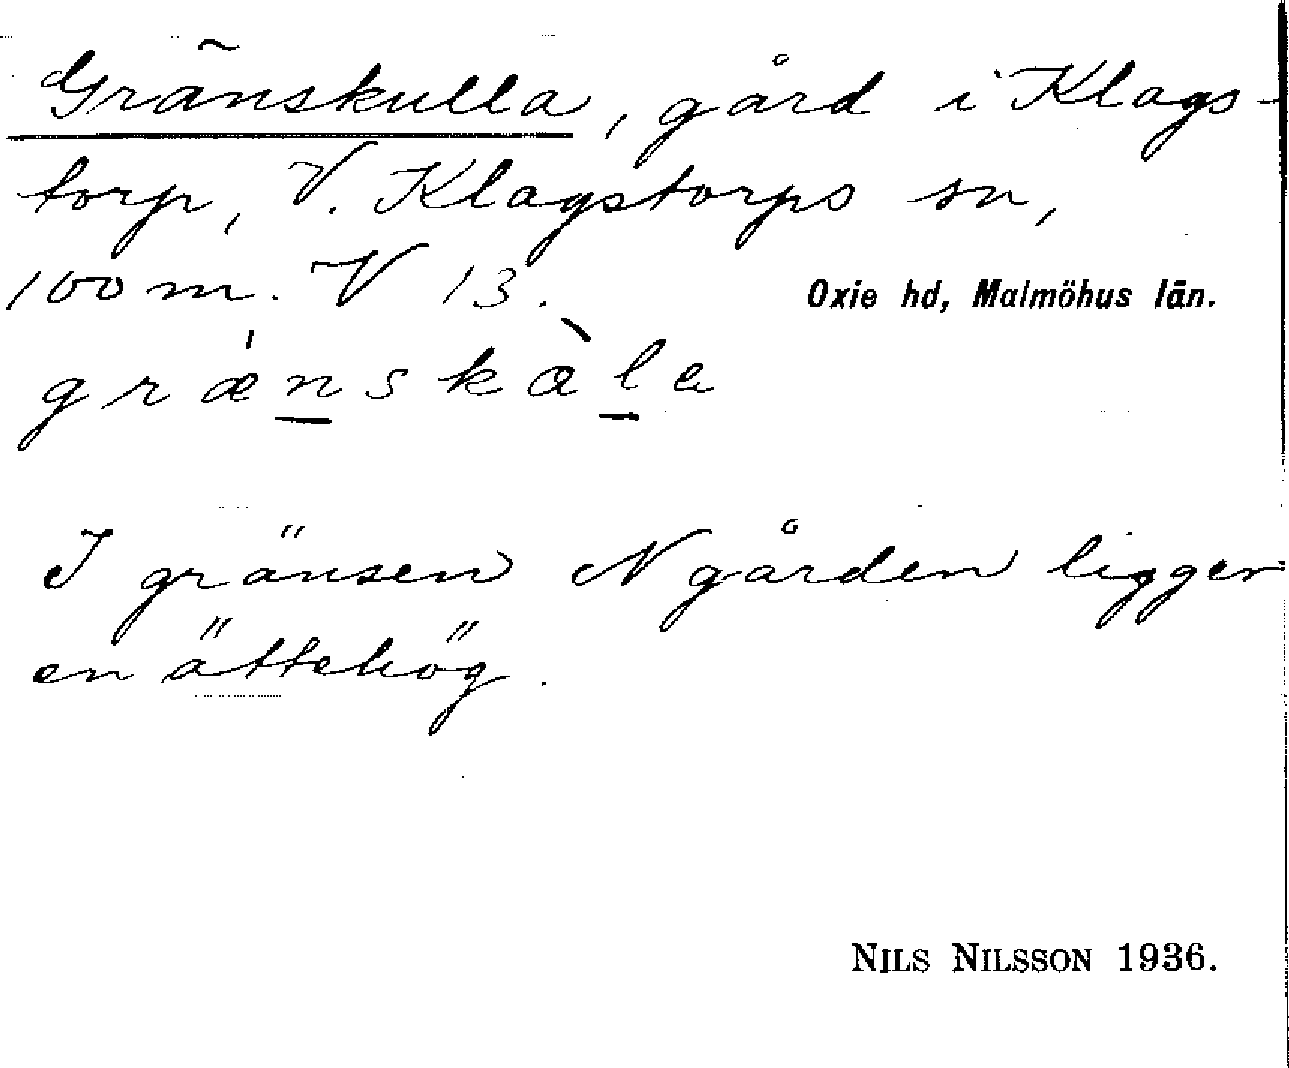 Gränskulla, gård i Klags-
torp, V. Klagstorps sn,
100 m. V 13.
Oxie hd, Malmöhus län.
græ̍n̲skàl̲a
I gränsen N gården ligger
en ättehög.
NILS NILSSON 1936.